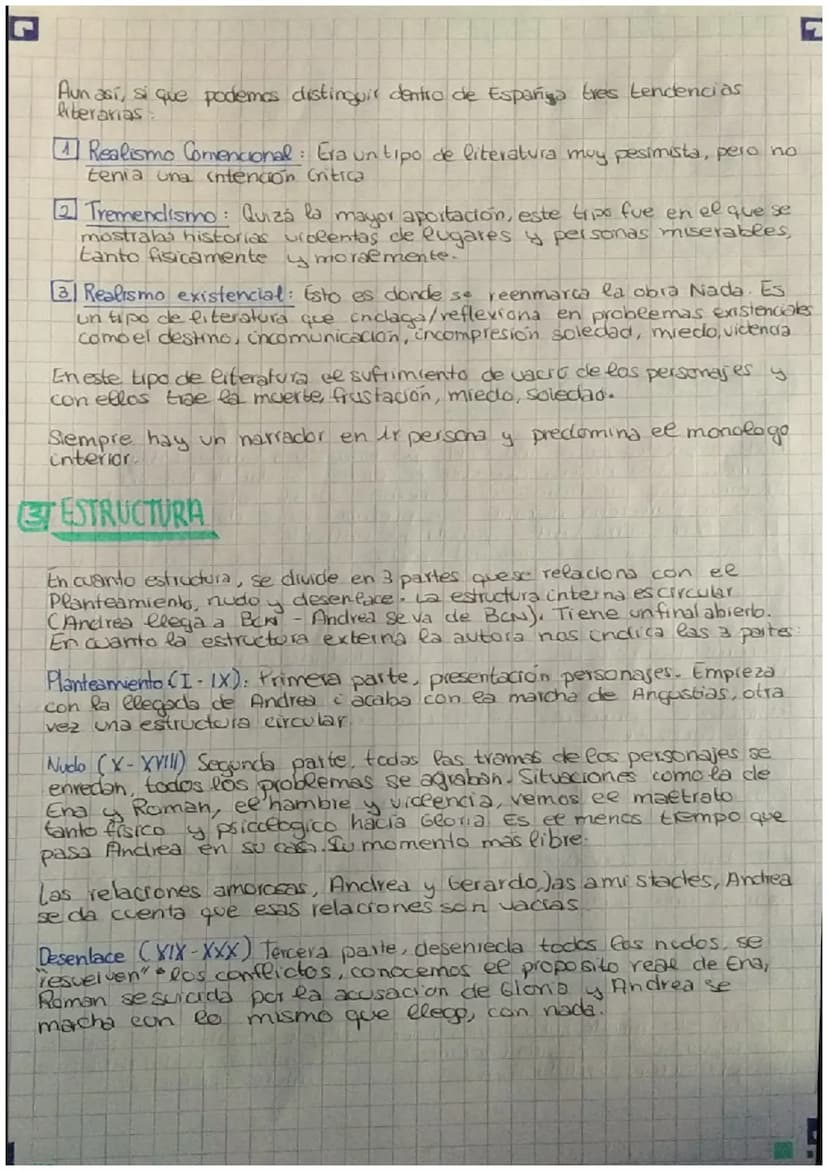 Aun así, si que podemos distinguir dentro de España tres tendencias
literarias:
1 Realismo Convencional: Era un tipo de literatura muy pesimista, pero no
tenia una intención crítica
2 Tremendismo: Quizá la mayor aportación, este tipo fue en el que se
mostraba historias violentas de lugares y personas miserables,
tanto fisicamente y moralmente.
3 Realismo existencial: Esto es donde se reenmarca la obra Nada. Es
un tipo de literatura que indaga/reflexiona en problemas existenciales
como el destino, incomunicación, incompresión soledad, miedo, violencia
En este tipo de literatura el sufrimiento de vacío de los personajes y
con ellos trae la muerte, frustación, miedo, soledad.
Siempre hay un narrador en 1r persona y predomina el monologo
interior.
3 ESTRUCTURA
En cuanto estructura, se divide en 3 partes que se relaciona con el
Planteamiento, nudo y desenlace. La estructura interna es circular
(Andrea llega a BCN - Andrea se va de BCN). Tiene un final abierto.
En cuanto la estructura externa la autora nos indica las 3 partes:
Planteamiento (I-IX): Primera parte, presentación personajes. Empieza
con la llegada de Andrea i acaba con la marcha de Angustias, otra
vez una estructura circular.
Nudo (X-XVIII) Segunda parte, todas las tramas de los personajes se
enredan, todos los problemas se agraban. Situaciones como la de
Ena y Roman, el hambre y violencia, vemos el maltrato
tanto físico y psicologico hacia Gloria Es el menos tiempo que
pasa Andrea en su casa. Su momento más libre.
Las relaciones amorosas, Andrea y Gerardo, las amistades, Andrea
se da cuenta que esas relaciones son vacías
Desenlace (XIX-XXX) Tercera parte, desenreda todos los nudos, se
"resuelven" los conflictos, conocemos el proposito real de Ena,
Roman se suicida por la acusación de Gloria y Andrea se
marcha con lo mismo que llego, con nada.